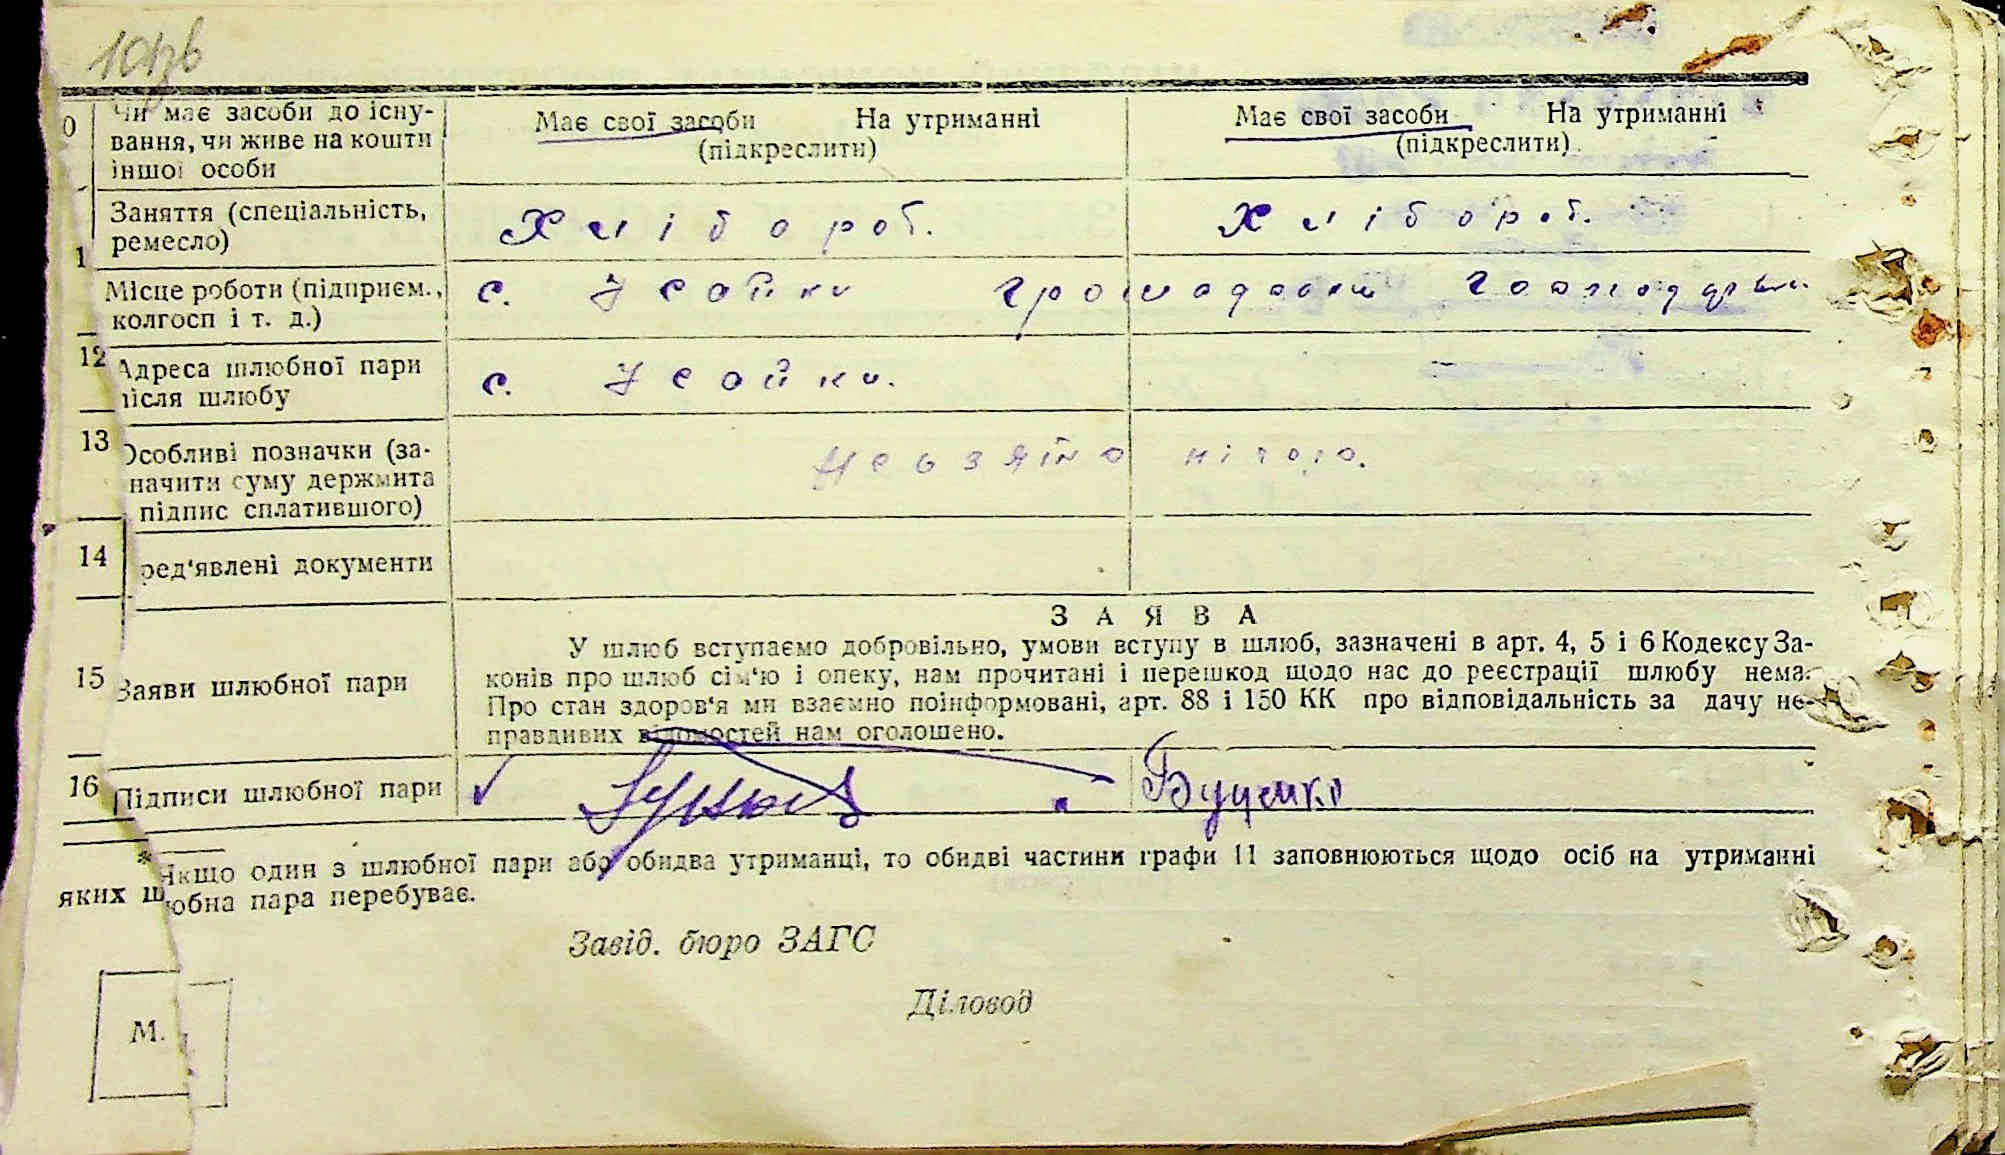 10 зв
0 Чи має засоби до існу-
вання, чи живе на кошти
іншої особи
Має свої засоби На утриманні
(підкреслити)
Має свої засоби На утриманні
(підкреслити)
Заняття (спеціальність,
ремесло)
Хлібороб. Хлібороб.
1
Місце роботи (підприєм.,
колгосп і т. д.)
с. Усайки громадські
12 Адреса шлюбної пари
після шлюбу
с. Усайки.
13 Особливі позначки (за-
начити суму держмита
підпис сплатившого)
Невзято нічого.
14 ред'явлені документи
ЗАЯВА
15 Заяви шлюбної пари
У шлюб вступаємо добровільно, умови вступу в шлюб, зазначені в арт. 4, 5 і 6 Кодексу За-
конів про шлюб сім'ю і опеку, нам прочитані і перешкод щодо нас до реєстрації шлюбу нема.
Про стан здоров'я ми взаємно поінформовані, арт. 88 і 150 КК про відповідальність за дачу не-
правдивих відомостей нам оголошено.
16 Підписи шлюбної пари
Буценко
* Якщо один з шлюбної пари або обидва утриманці, то обидві частини графи 11 заповнюються щодо осіб на утриманні
яких шлюбна пара перебуває.
Завід. бюро ЗАГС
Діловод
М.